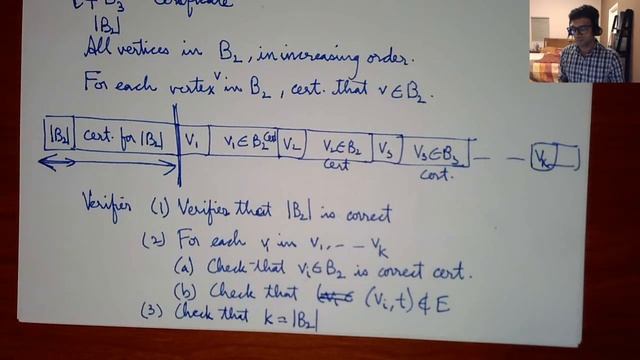 t ∉ B₃ Certificate
|B₂|
All vertices in B₂, in increasing order.
For each vertex v in B₂, cert. that v ∈ B₂.
|B₂| cert. for |B₂| V₁ V₁ ∈ B₂ cert V₂ V₂ ∈ B₂ cert V₃ V₃ ∈ B₂ cert. — — Vₖ
Verifier (1) Verifies that |B₂| is correct
(2) For each vᵢ in V₁, - - Vₖ
(a) Check that vᵢ ∈ B₂ is correct cert.
(b) Check that (vᵢ, t) ∉ E
(3) Check that k = |B₂|